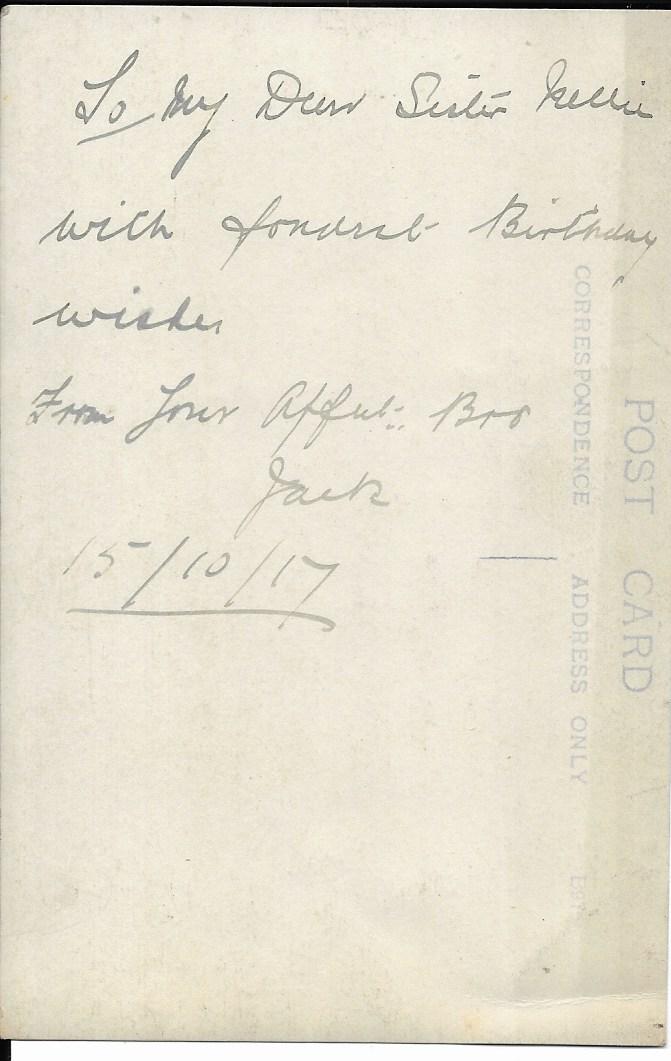 To My Dear Sister Nellie
with fondest Birthday
wishes
From Your Affect: Bro
Jack
15/10/17
POST CARD
CORRESPONDENCE
ADDRESS ONLY